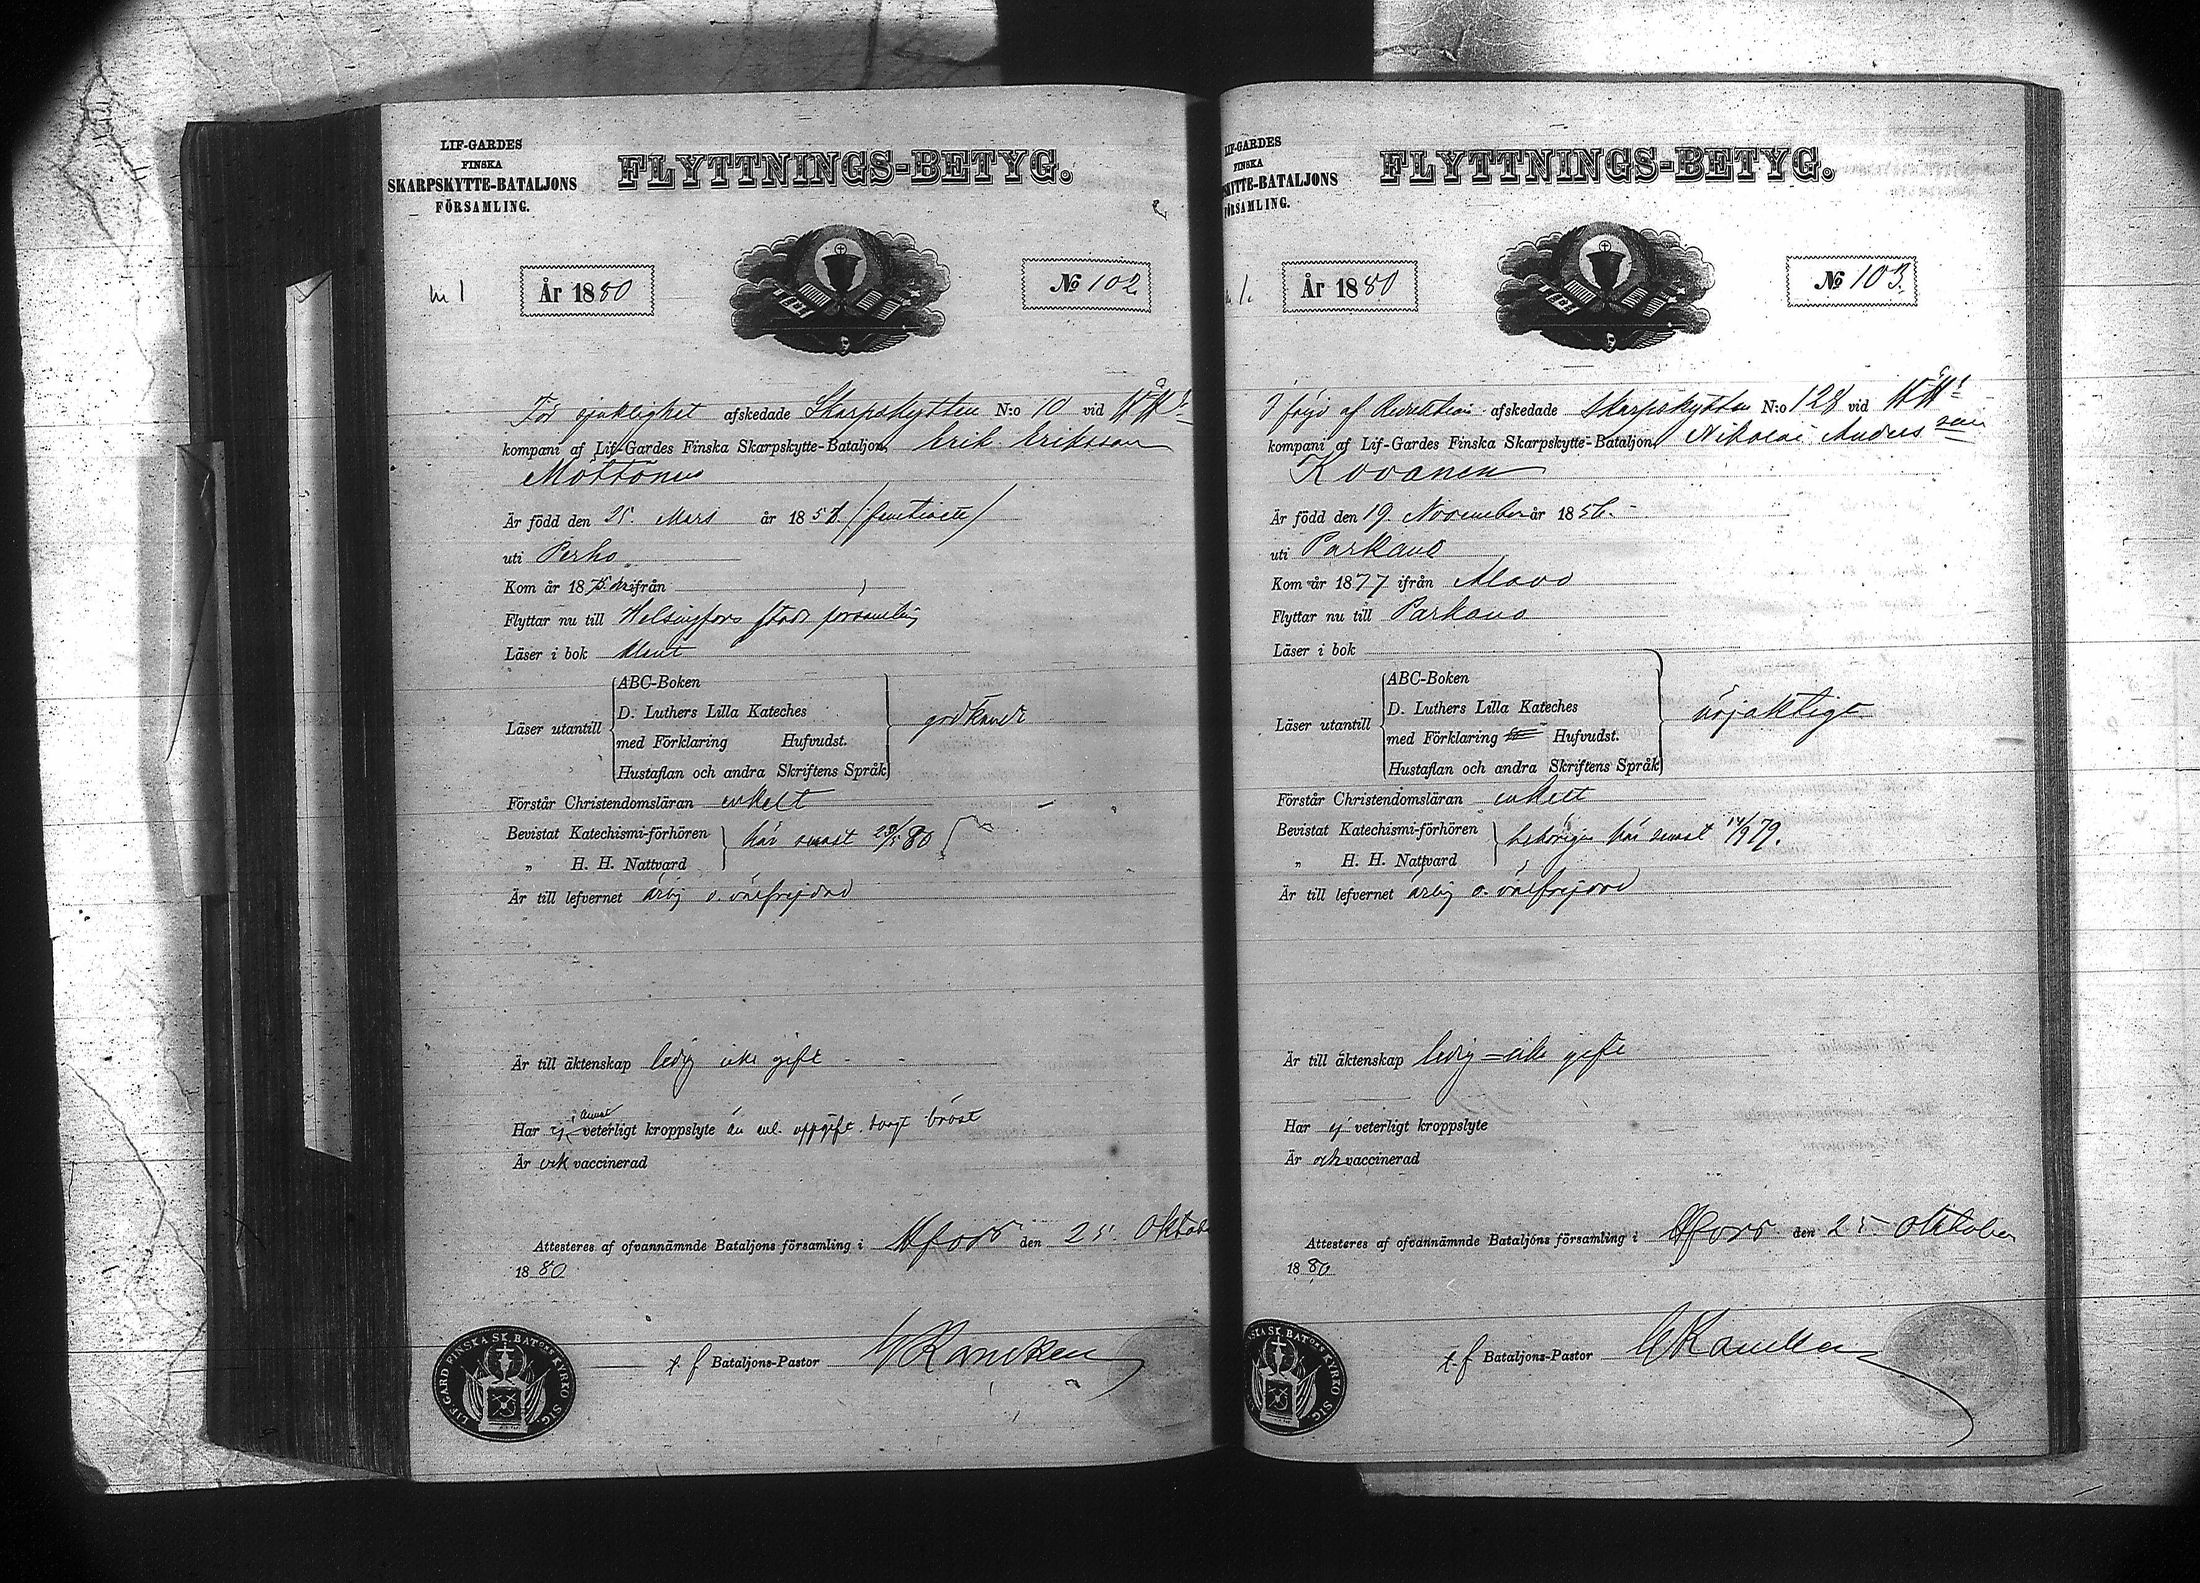 LIF-GARDES
FINSKA
SKARPSKYTTE-BATALJONS
FÖRSAMLING.
FLYTTNINGS-BETYG.
År 1880
№ 102
För sjuklighet afskedade Skarpskytten N:o 10 vid
kompani af Lif-Gardes Finska Skarpskytte-Bataljon, Erik Eriksson
Mottönen
Är född den 25. Mars år 185
uti Perho
Kom år 18 ifrån
Flyttar nu till Helsingfors stads församling
Läser i bok
ABC-Boken
D. Luthers Lilla Kateches
Läser utantill
med Förklaring Hufvudst.
godkändt
Hustaflan och andra Skriftens Språk
Förstår Christendomsläran enkelt
Bevistat Katechismi-förhören
här senast 80
„ H. H. Nattvard
Är till lefvernet ärlig o. välfrejdad
Är till äktenskap ledig icke gift
Har ej annat veterligt kroppslyte än enl. uppgift bröst
Är ock vaccinerad
Attesteres af ofvannämnde Bataljons församling i Hfors den 25. Oktob
1880
t. f. Bataljons-Pastor Rancken
LIF. GARD. FINSKA SK. BAT:ONS KYRKO SIG.
LIF-GARDES
FINSKA
SKYTTE-BATALJONS
FÖRSAMLING.
FLYTTNINGS-BETYG.
År 1880
№ 103.
I följd af Reduktion afskedade Skarpskytten N:o 128 vid
kompani af Lif-Gardes Finska Skarpskytte-Bataljon, Nikolai Andersson
Kovanen
Är född den 19. November år 1856.
uti Parkano
Kom år 1877 ifrån Alavo
Flyttar nu till Parkano
Läser i bok
ABC-Boken
D. Luthers Lilla Kateches
Läser utantill
med Förklaring Hufvudst.
nöjaktigt
Hustaflan och andra Skriftens Språk
Förstår Christendomsläran enkelt
Bevistat Katechismi-förhören
behörigen här senast 14/9 79.
„ H. H. Nattvard
Är till lefvernet ärlig o. välfrejdad
Är till äktenskap ledig = icke gift
Har ej veterligt kroppslyte
Är ock vaccinerad
Attesteres af ofvannämnde Bataljons församling i Hfors den 25 Oktober
1880
t. f. Bataljons-Pastor Rancken
SKA SK. BAT:ONS KYRKO SIG.